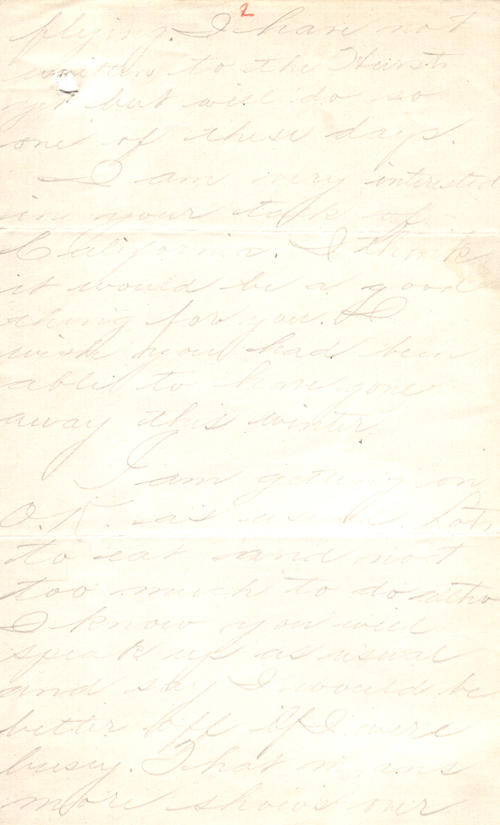 2
plying. I have not
written to the Hursts
yet but will do so
one of these days.
I am very interested
in your talk of
California. I think
it would be a good
thing for you. I
wish you had been
able to have gone
away this winter
I am getting on
O.K. as usual. Lots
to eat and not
too much to do altho
I know you will
speak up as usual
and say I would be
better off if I were
busy. That means
more shows over